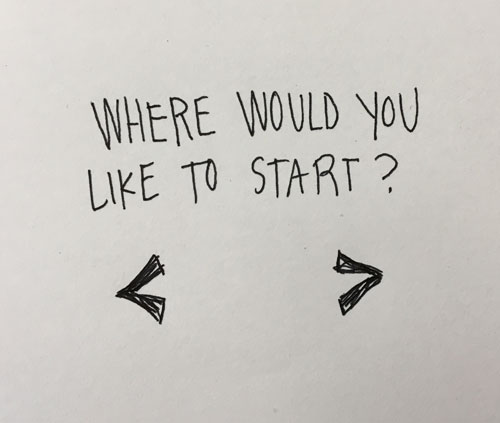 WHERE WOULD YOU
LIKE TO START?